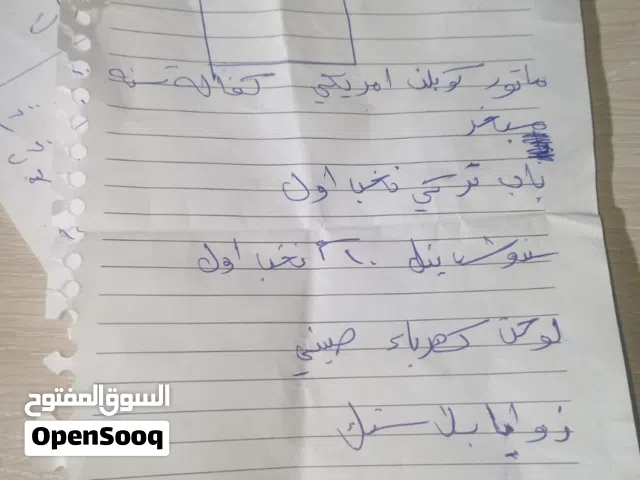 ماتور كوبلن امريكي كفالة سنه
مبخر
باب تركي نخب اول
سندوش بنل ١٠ نخب اول
لوحة كهرباء صيني
زوايا بلاستك
السوق المفتوح
OpenSooq